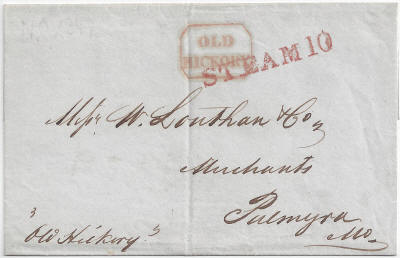 OLD
HICKORY
STEAM 10
Messrs. W. Louthan & Co,
Merchants
Palmyra
Mo.
"Old Hickory"